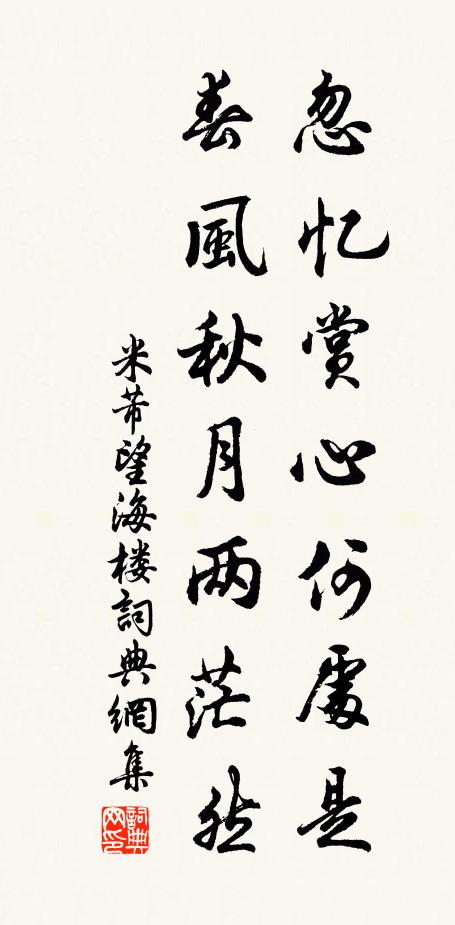 忽忆赏心何處是
春風秋月两茫然
米芾望海楼詞典網集
詞典网印